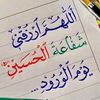 اللهم ارزقني
شفاعة الحسين
يوم الورود..